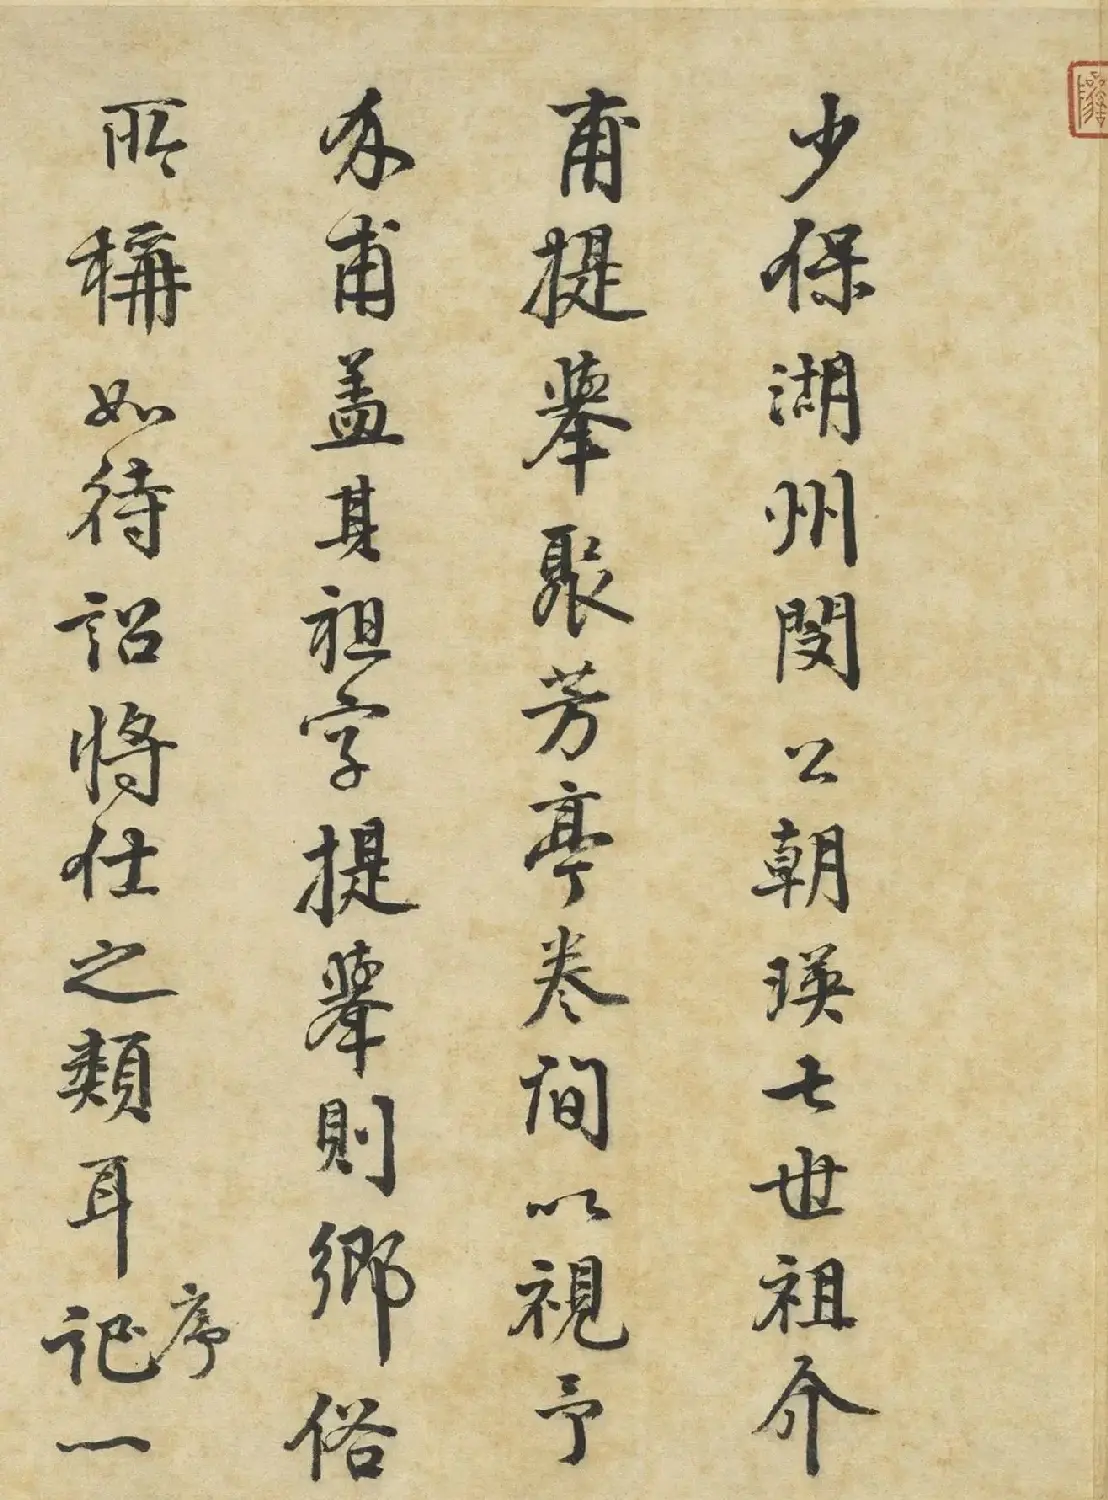 少保湖州閔公朝瑛七世祖介
甫提舉聚芳亭卷間以視予
介甫盖其祖字提舉則鄉俗
所稱如待詔將仕之類耳記序一